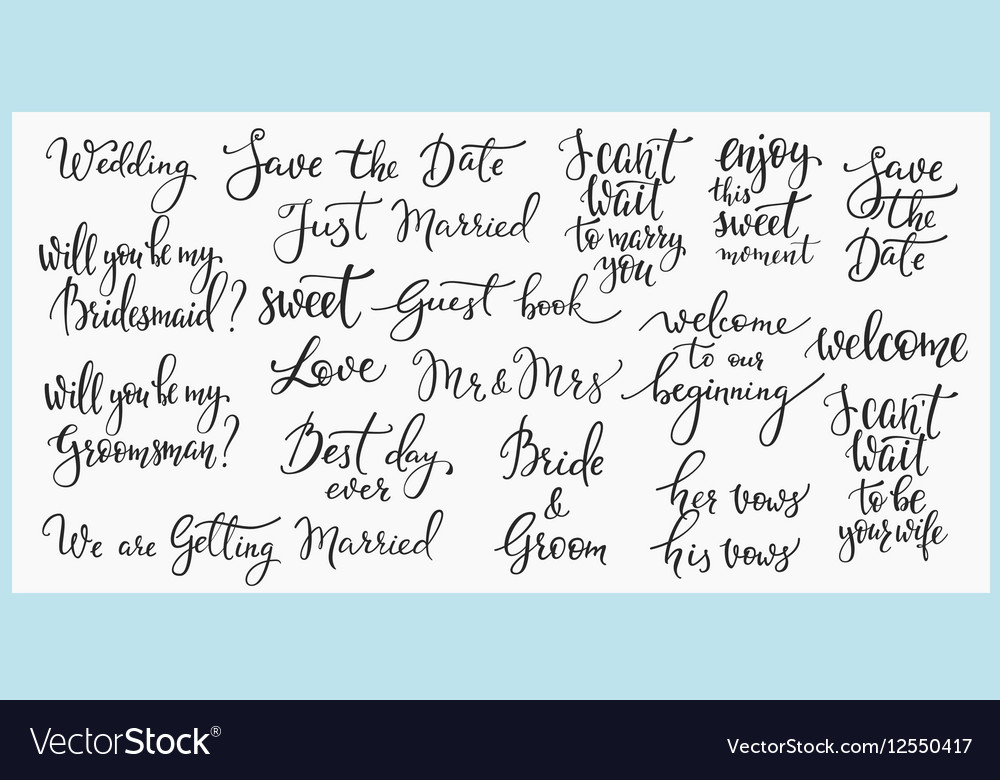 Wedding
Save the Date
I can't
wait
to marry
you
enjoy
this
sweet
moment
Save
the
Date
Just Married
will you be my
Bridesmaid?
sweet
Guest book
welcome
to our
beginning
welcome
Love
Mr & Mrs
will you be my
Groomsman?
Best day
ever
Bride
&
Groom
her vows
his vows
I can't
wait
to be
your wife
We are Getting Married
VectorStock®
VectorStock.com/12550417